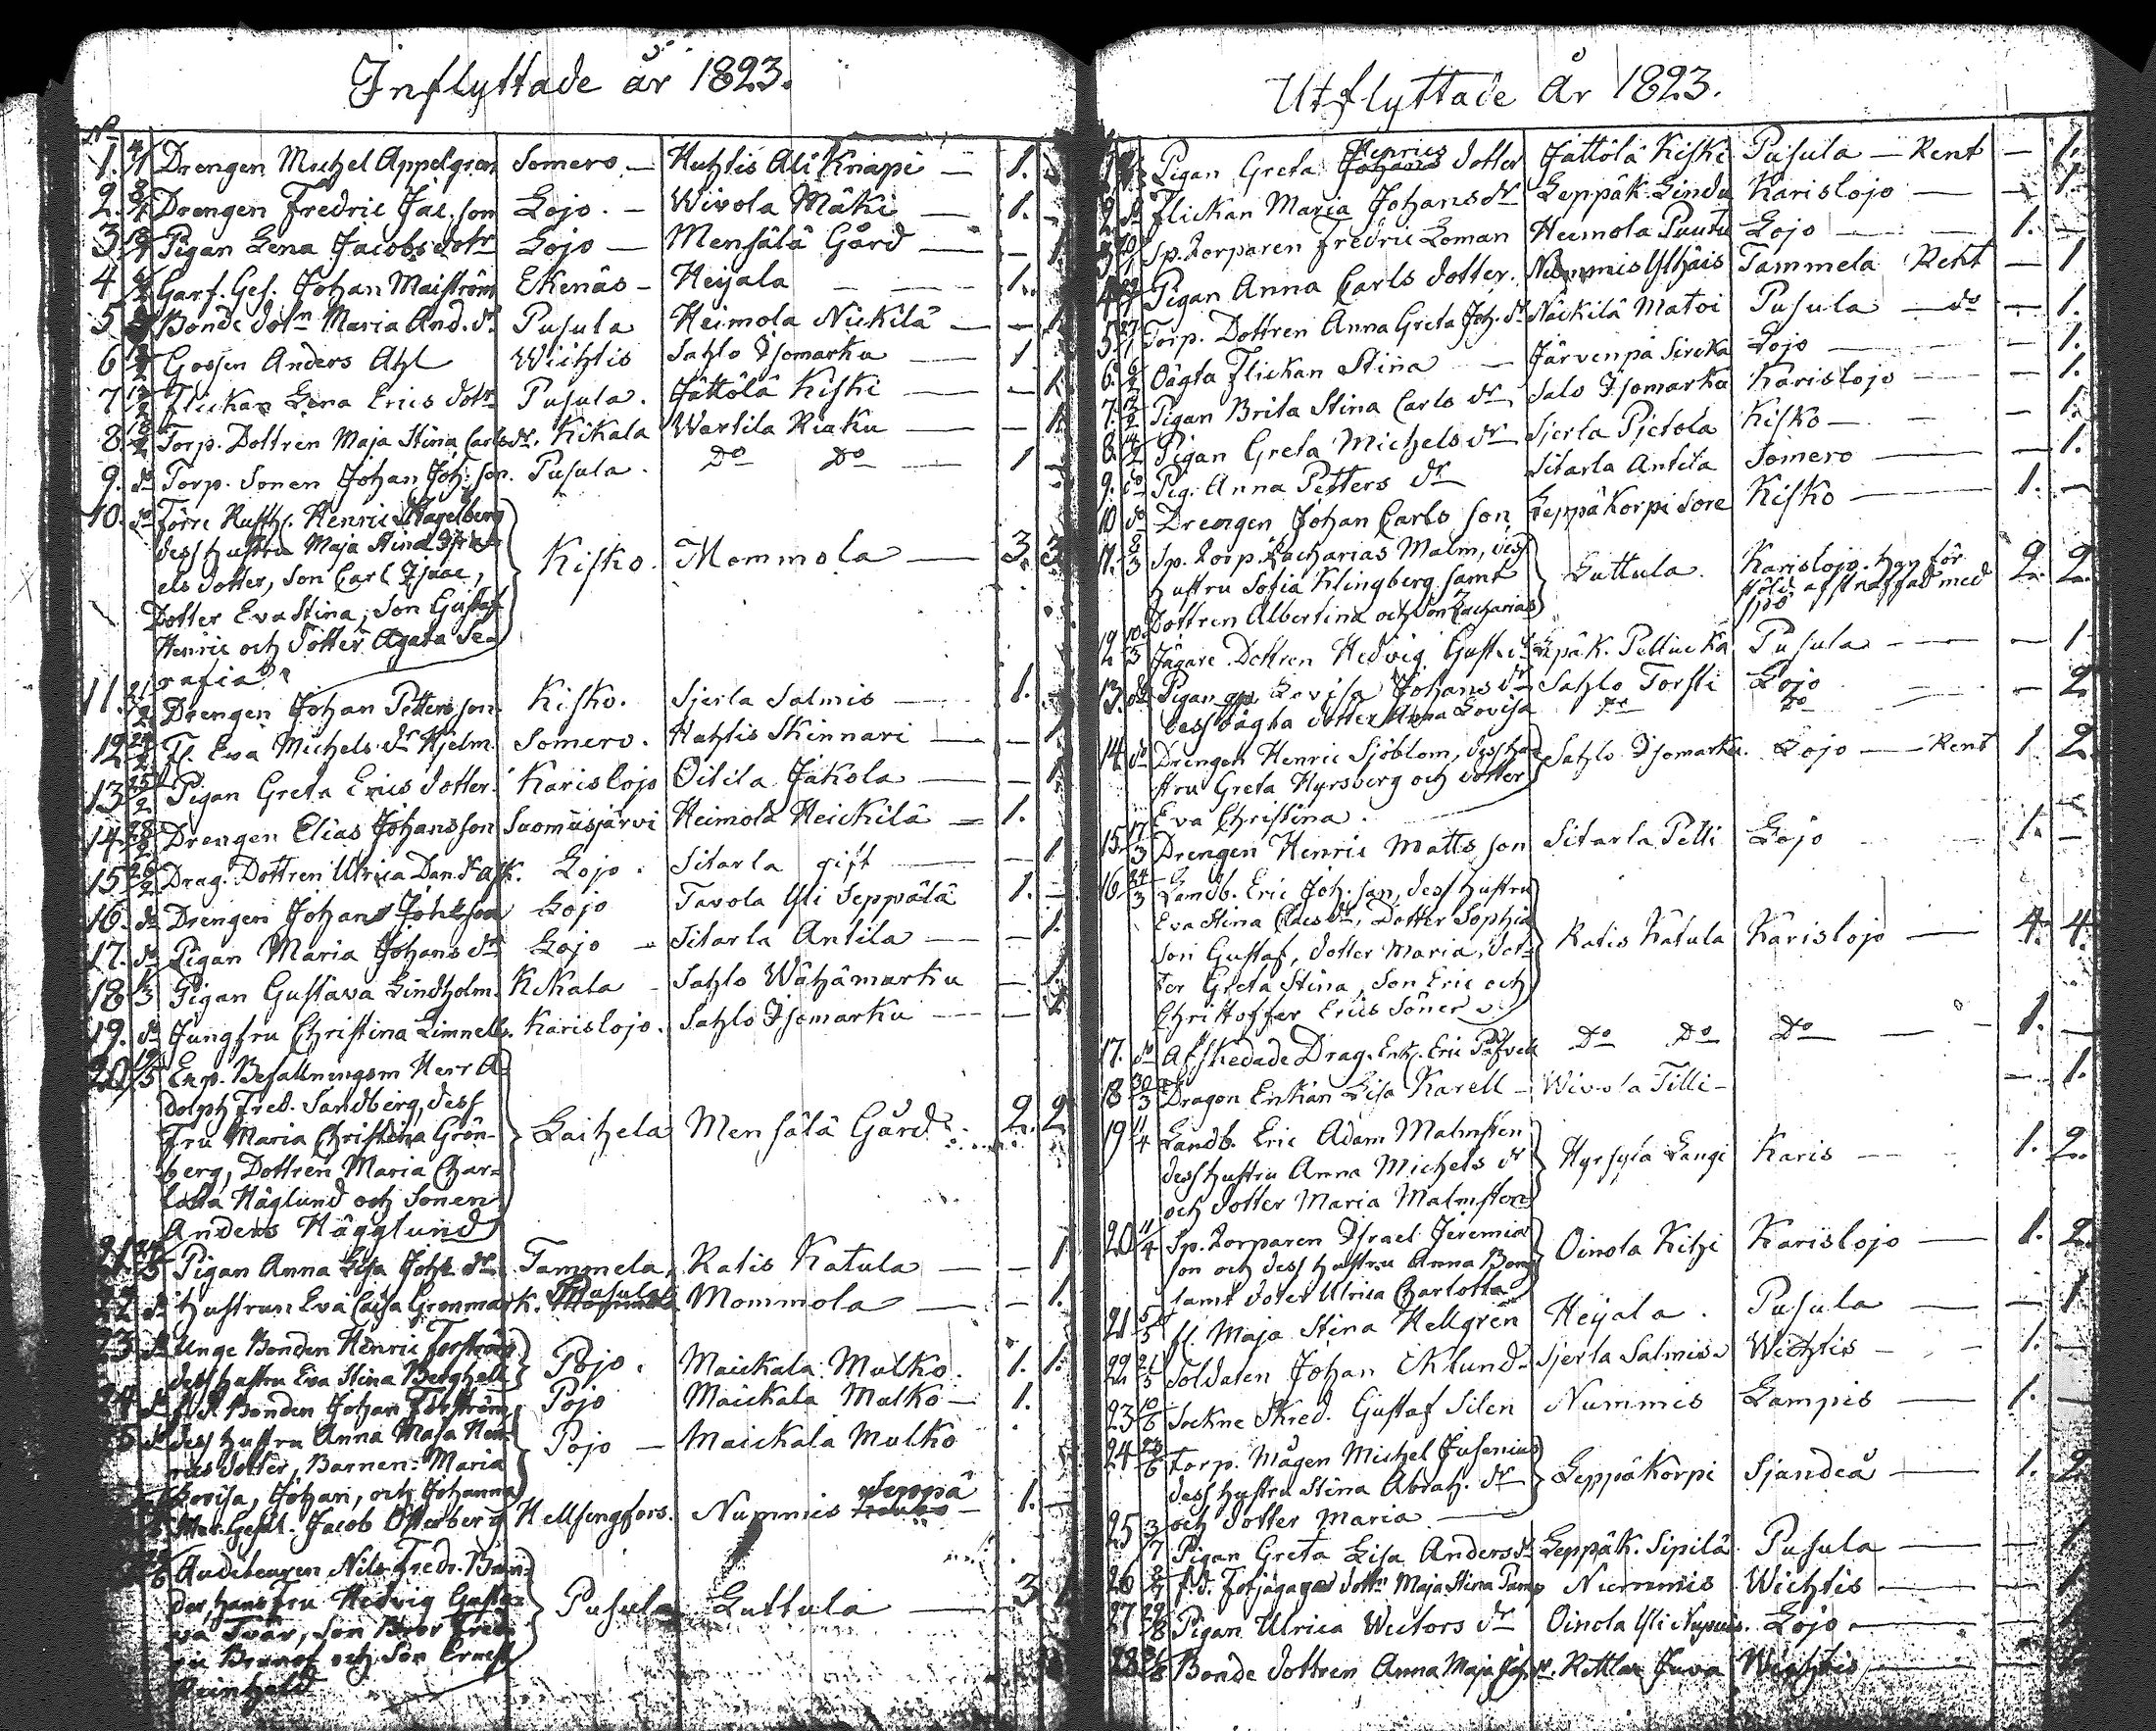 Inflyttade år 1823.
No
1. Drengen Michel Appelgren Somero — Huhtis Ali Knapi — 1.
2. Drengen Fredric Jac. son Lojo. — Wivola Mäki — 1. -
3 Pigan Lena Jacobs dotr Lojo — Mensälä Gård — - 1.
4 Garf. Ges. Johan Maiström Ekenäs - Heijala - — 1.
5 Bonde dotrn Maria And. dr Pusula Heimola Nickilä — - 1
6 Gossen Anders Ahl Wichtis Sahlo Isomarku — 1
7 12/2 Flickan Lena Erics dotr Pusula. Jättölä Kiski — - 1.
8 18/2 Torp. Dottren Maja Stina Carls dr. Kikala Wartila Riaku — - 1.
9. do Torp. Sonen Johan Joh. son. Pusula. Do Do — 1 -
10. do Förre Rusth. Henric Hagelberg
dess hustru Maja Stina
els dotter, Son Carl Isaac,
Dotter Eva Stina, Son Gustaf
Henric och Dotter Agata Se-
rafia Kisko. Mommola — 3. 3
11. Drengen Johan Petters son Kisko. Sjerla Salmis — 1.
12 24/2 Fl. Eva Michels dr Hjelm Somero. Huhtis Skinnari — - 1
13 25/2 Pigan Greta Erics dotter. Karislojo Oitila Jakola — - 1
14 28/2 Drengen Elias Johansson Suomusjärvi Heimola Heickilä — 1.
15 26/2 Drag. Dottren Ulrica Dan. Kask. Lojo. Sitarla gift — - 1
16. do Drengen Johan Johansson Lojo Tavola Yli Seppälä 1. -
17. do Pigan Maria Johans dr Lojo - Sitarla Antila — - 1.
18 Pigan Gustava Lindholm. Kikala - Sahlo Wähämarku — 1.
19. do Jungfru Christina Limnell. Karislojo. Sahlo Isomarku — - 1
20 Exp. Befallningsm Herr A-
dolph Fred. Sandberg, dess
Fru Maria Christina Grön-
berg, Dottren Maria Char-
lotta Häglund och Sonen
Anders Hägglund Laihela Mensälä Gård 2. 2
21 Pigan Anna Lisa Joh. dr Tammela, Ratis Katula — - 1
22 do Hustrun Eva Caisa Gronmark. Pusula Mommola — - 1.
23 do Unge Bonden Henric Forström
dess hustru Eva Stina Berghell Pojo. Maickala Mulko. 1. 1.
24 do f.d. Bonden Johan Forström, Pojo Maickala Mulko — 1.
do dess hustru Anna Maja Hen-
rics dotter, Barnen: Maria
Lovisa, Johan, och Johanna Pojo — Maickala Mulko
Gesäl. Jacob Österberg Hellsingfors. Nummis Seppä 1. -
Auditeuren Nils Fredr.
der, hans Fru Hedvig Gusta-
va Tvär, Son Bror Fred-
ric och Son Ernest
Reinhold Pusula Luttula — 3
Utflyttade År 1823.
1 Pigan Greta Henrics dotter Jättölä Kiski Pusula — Rent — 1.
2 do Flickan Maria Johans dr Leppäk. Lindu Karislojo — - 1
3 Sp. Torparen Fredric Loman Heimola Puutu Lojo — 1. -
4 Pigan Anna Carls dotter. Nummis Tammela Rent — 1
5 27/1 Torp. Dottren Anna Greta Joh. dr Näckilä Matoi Pusula — do — 1.
6. 6/2 Oägta Flickan Stina — Järvenpä Sircka Lojo — - 1.
7. 12/2 Pigan Brita Stina Carls dr Salo Isomarku Karislojo — - 1.
8. 14/2 Pigan Greta Michels dr Sjerla Pietola Kisko — - 1.
9. do Pig. Anna Petters dr Sitarla Antila Somero — - 1.
10 do Drengen Johan Carls son Leppäkorpi Sore Kisko — 1. -
11. 8/3 Sp. Torp. Zacharias Malm, dess
hustru Sofia Klingberg samt
Dottren Albertina och Son Zacharias Luttula. Karislojo. Han för
stöld afstraffad med
spö 2. 2.
12 10/3 Jägare Dottren Hedvig Gust. dr Lepäk. Peltuckä Pusula — - 1
13. do Pigan Lovisa Johans dr Sahlo Torsti Lojo — - 2
dess oägta dotter Anna Lovisa Do Do
14 do Drengen Henric Sjöblom, dess hu-
stru Greta Hyrsberg och dotter
Eva Christina. Sahlo Isomarku. Lojo — Rent 1. 2.
15. 17/3 Drengen Henric Matts son Sitarla Pelli Lojo — 1. -
16 24/3 Landb. Eric Joh. son, dess hustru
Eva Stina Claes dr, Dotter Sophia
Son Gustaf, dotter Maria, dot-
ter Greta Stina, Son Eric och
Christoffer Erics Söner Ratis Katula Karislojo — 4. 4.
17. do Afskedade Drag. Enk. Eric Do Do Do — 1. -
18 30/3 Dragon Enkan Lisa Karell — Wivola Tilli - - 1.
19 11/4 Landb. Eric Adam Malmsten
dess hustru Anna Michels dr
och dotter Maria Malmsten Hyrsylä Langi Karis — 1. 2.
20 11/4 Sp. Torparen Israel Jeremias
son och dess hustru Anna
samt doter Ulrica Charlotta Oinola Kihi Karislojo — 1. 2.
21 5/5 fl. Maja Stina Hellgren Heijala. Pusula — - 1
22 21/5 Soldaten Johan Eklund. Sjerla Salmis. Wichtis - 1. -
23 10/6 Sockne Skred. Gustaf Silen Nummis Lampis — 1. -
24 23/6 Torp. Mågen Michel Jusenius
dess hustru Stina Abrah. dr
och dotter Maria Leppäkorpi Sjundeå — 1. 2
25 3/7 Pigan Greta Lisa Anders dr Leppäk. Sipilä Pusula — - 1
26 f.d. dottr Maja Stina Nummis Wichtis — - 1
27 29/8 Pigan Ulrica Wictors dr Oinola Yli Lojo — - 1
28 Bonde dottren Anna Maja Joh. dr. Rettlax Juva Wichtis —